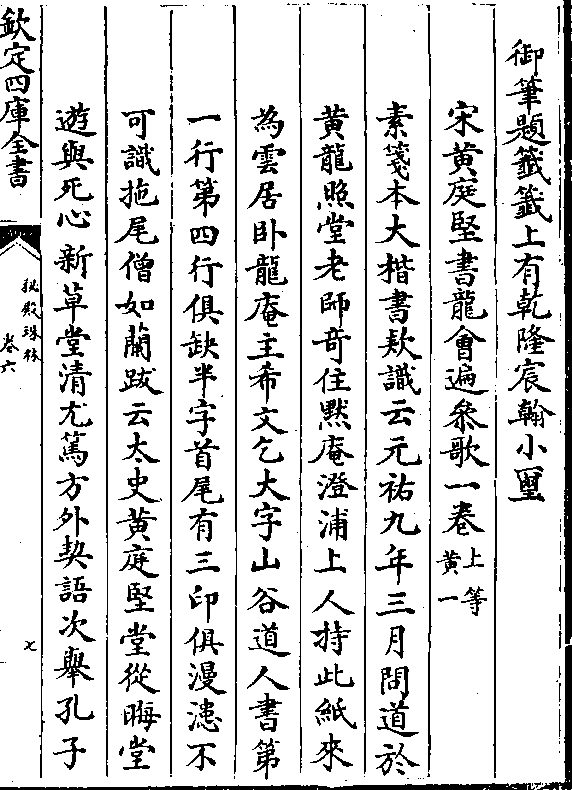 御筆題籤籤上有乾隆宸翰小璽
宋黄庭堅書龍會遍叅歌一卷上等黄一
素箋本大楷書欵識云元祐九年三月問道於
黄龍照堂老師竒住黙庵澄浦上人持此紙來
為雲居卧龍庵主希文乞大字山谷道人書第
一行第四行俱缺半字首尾有三印俱漫漶不
可識拖尾僧如蘭跋云太史黄庭堅堂從晦堂
遊與死心新草堂清尤篤方外契語次舉孔子
欽定四庫全書
秘殿珠林
卷六
七